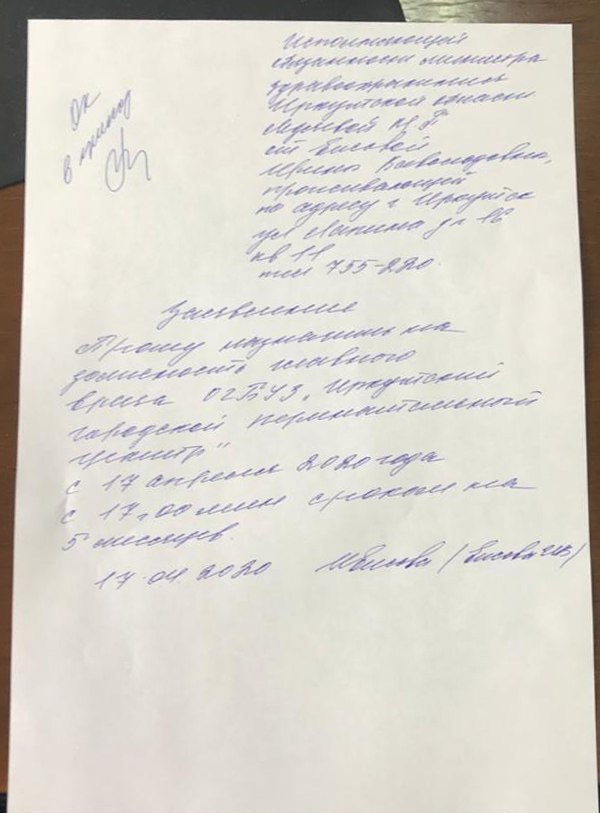 Ок
в приказ
Исполняющей
обязанности министра
здравоохранения
Иркутской области
Ледяевой Н. П.
от Ежовой
Ирины Всеволодовны,
проживающей
по адресу г Иркутск
ул Лапина д
кв 11
тел 755-220.
Заявление
Прошу назначить на
должность главного
врача ОГБУЗ „Иркутский
городской перинатальный
центр"
с 17 апреля 2020 года
с 17.00 мин сроком на
5 месяцев.
17 04 2020